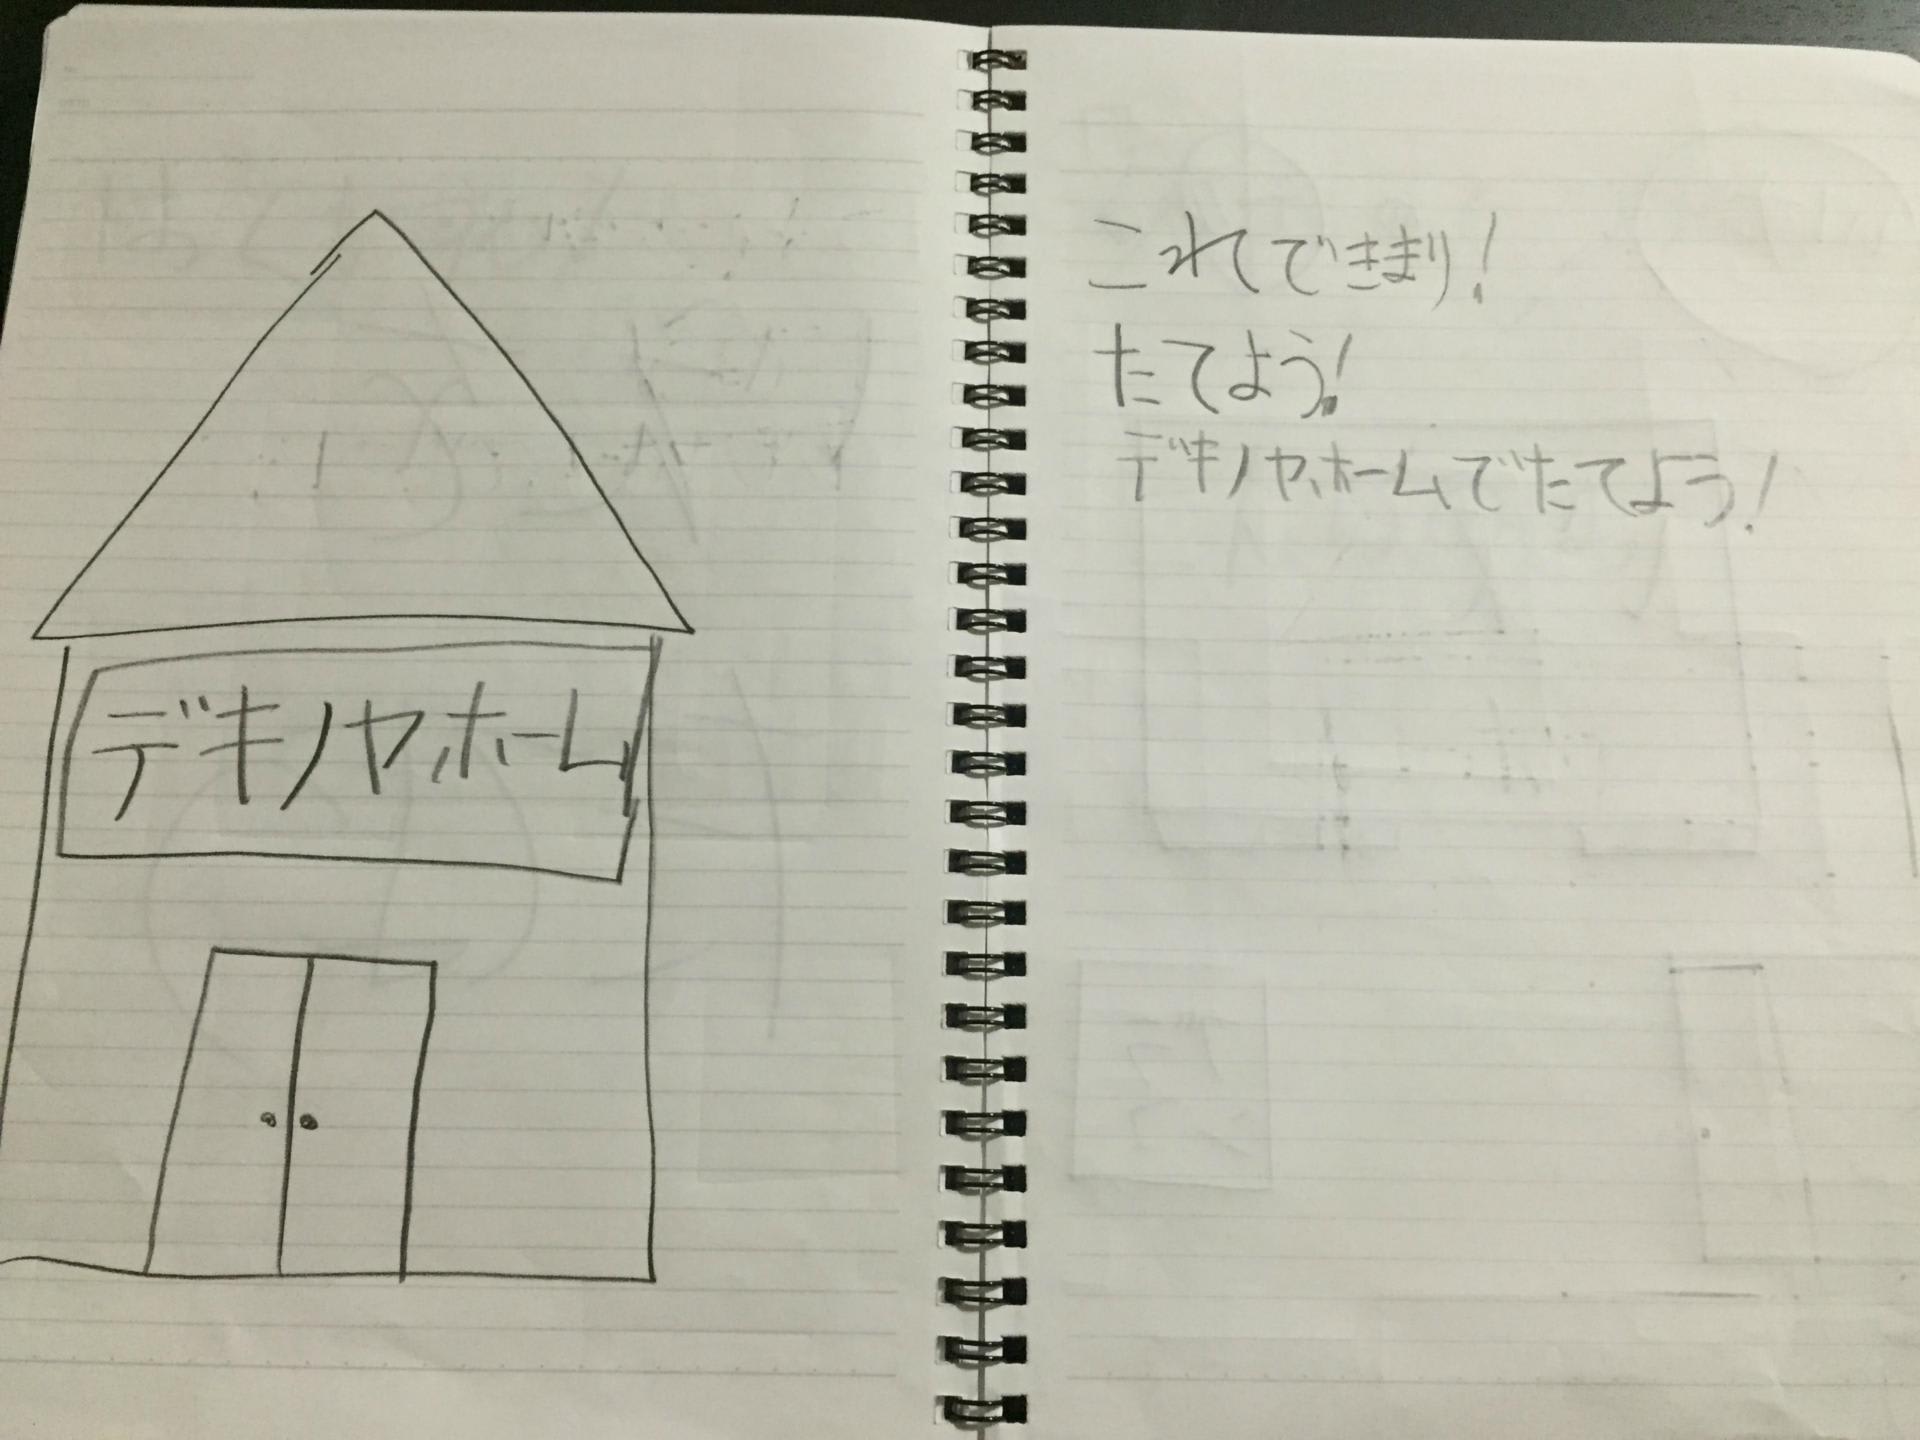 デキノヤホーム
これできまり!
たてよう!
デキノヤホームでたてよう!